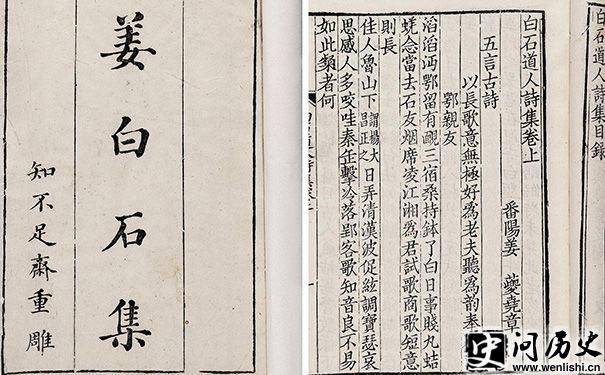 姜白石集
知不足齋重雕
白石道人詩集目録
白石道人詩集卷上
番陽姜 夔堯章
五言古詩
以長歌意無極好爲老夫聽爲韵奉
鄂親友
滔滔沔鄂留有靦三宿桑持鉢了白日事賤丸蛣
蜣念當去石友烟席凌江湘爲君試歌商歌短意
則長
佳人魯山下謂楊大昌正之日弄清漢波促絃調寶瑟哀
思感人多咬哇秦缶擊冷落郢客歌知音良不易
如此粲者何
史问历史
www.wenlishi.cn